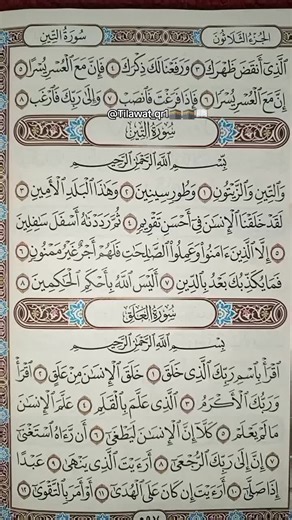 الجزء الثلاثون سورة التين
الَّذِي أَنقَضَ ظَهْرَكَ ٣ وَرَفَعْنَا لَكَ ذِكْرَكَ ٤ فَإِنَّ مَعَ الْعُسْرِ يُسْرًا ٥
إِنَّ مَعَ الْعُسْرِ يُسْرًا ٦ فَإِذَا فَرَغْتَ فَانصَبْ ٧ وَإِلَىٰ رَبِّكَ فَارْغَب ٨
@Tilawat.qr1
سورة التين
بِسْمِ اللَّهِ الرَّحْمَٰنِ الرَّحِيمِ
وَالتِّينِ وَالزَّيْتُونِ ١ وَطُورِ سِينِينَ ٢ وَهَٰذَا الْبَلَدِ الْأَمِينِ ٣
لَقَدْ خَلَقْنَا الْإِنسَٰنَ فِي أَحْسَنِ تَقْوِيمٍ ٤ ثُمَّ رَدَدْنَٰهُ أَسْفَلَ سَٰفِلِينَ
٥ إِلَّا الَّذِينَ ءَامَنُوا وَعَمِلُوا الصَّٰلِحَٰتِ فَلَهُمْ أَجْرٌ غَيْرُ مَمْنُونٍ ٦
فَمَا يُكَذِّبُكَ بَعْدُ بِالدِّينِ ٧ أَلَيْسَ اللَّهُ بِأَحْكَمِ الْحَٰكِمِينَ ٨
سورة العلق
بِسْمِ اللَّهِ الرَّحْمَٰنِ الرَّحِيمِ
اقْرَأْ بِاسْمِ رَبِّكَ الَّذِي خَلَقَ ١ خَلَقَ الْإِنسَٰنَ مِنْ عَلَقٍ ٢ اقْرَأْ
وَرَبُّكَ الْأَكْرَمُ ٣ الَّذِي عَلَّمَ بِالْقَلَمِ ٤ عَلَّمَ الْإِنسَٰنَ
مَا لَمْ يَعْلَمْ ٥ كَلَّا إِنَّ الْإِنسَٰنَ لَيَطْغَىٰ ٦ أَن رَّءَاهُ اسْتَغْنَىٰ
٧ إِنَّ إِلَىٰ رَبِّكَ الرُّجْعَىٰ ٨ أَرَءَيْتَ الَّذِي يَنْهَىٰ ٩ عَبْدًا
إِذَا صَلَّىٰ ١٠ أَرَءَيْتَ إِن كَانَ عَلَى الْهُدَىٰ ١١ أَوْ أَمَرَ بِالتَّقْوَىٰ ١٢
٥٩٧